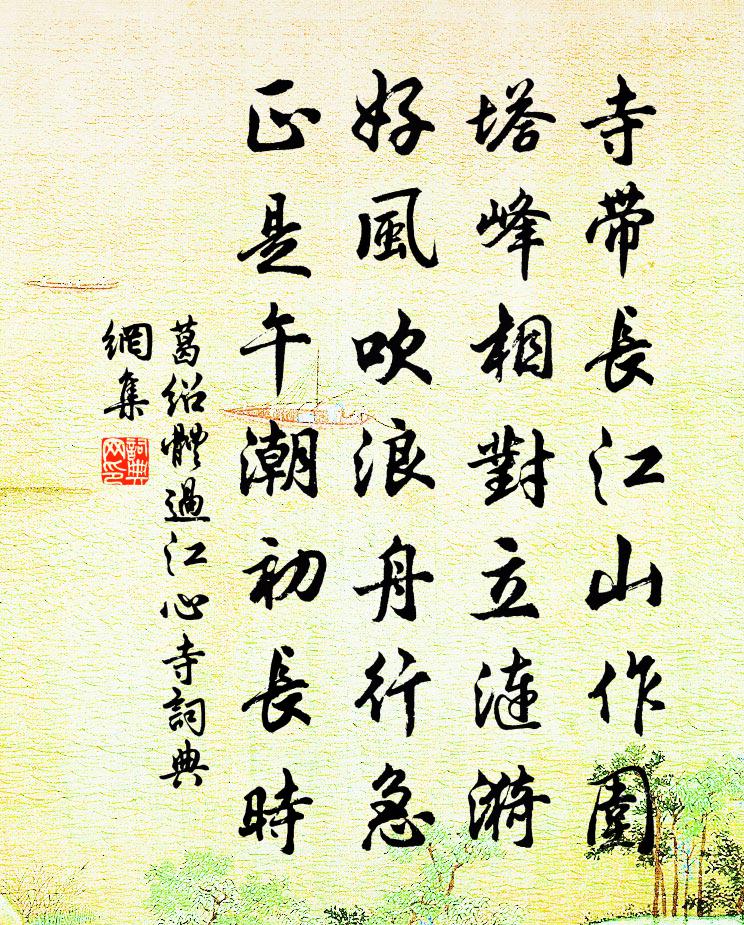 寺帶長江山作圍
塔峰相對立漣漪
好風吹浪舟行急
正是午潮初長時
葛紹體過江心寺詞典
網集
詞典
网印